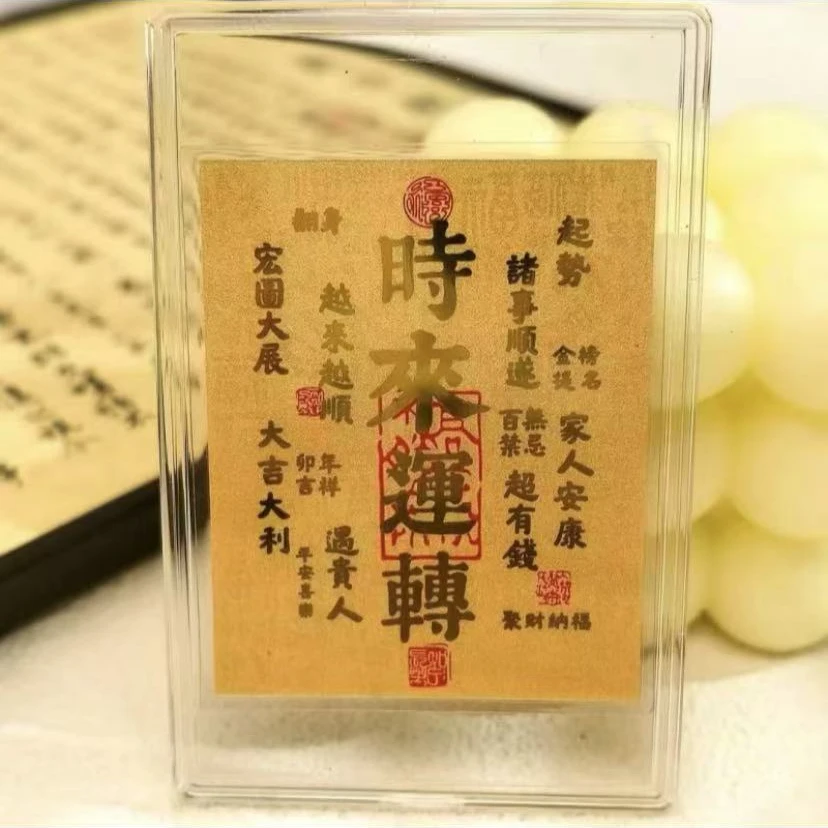 起勢
金榜
提名
家人安康
諸事順遂
百無
禁忌
超有錢
聚財納福
時來運轉
越來越順
卯年
吉祥
遇貴人
平安喜樂
翻身
宏圖大展
大吉大利